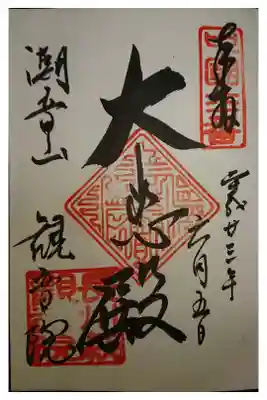 奉拝
平成廿三年
六月五日
大悲殿
潮音山 観音院